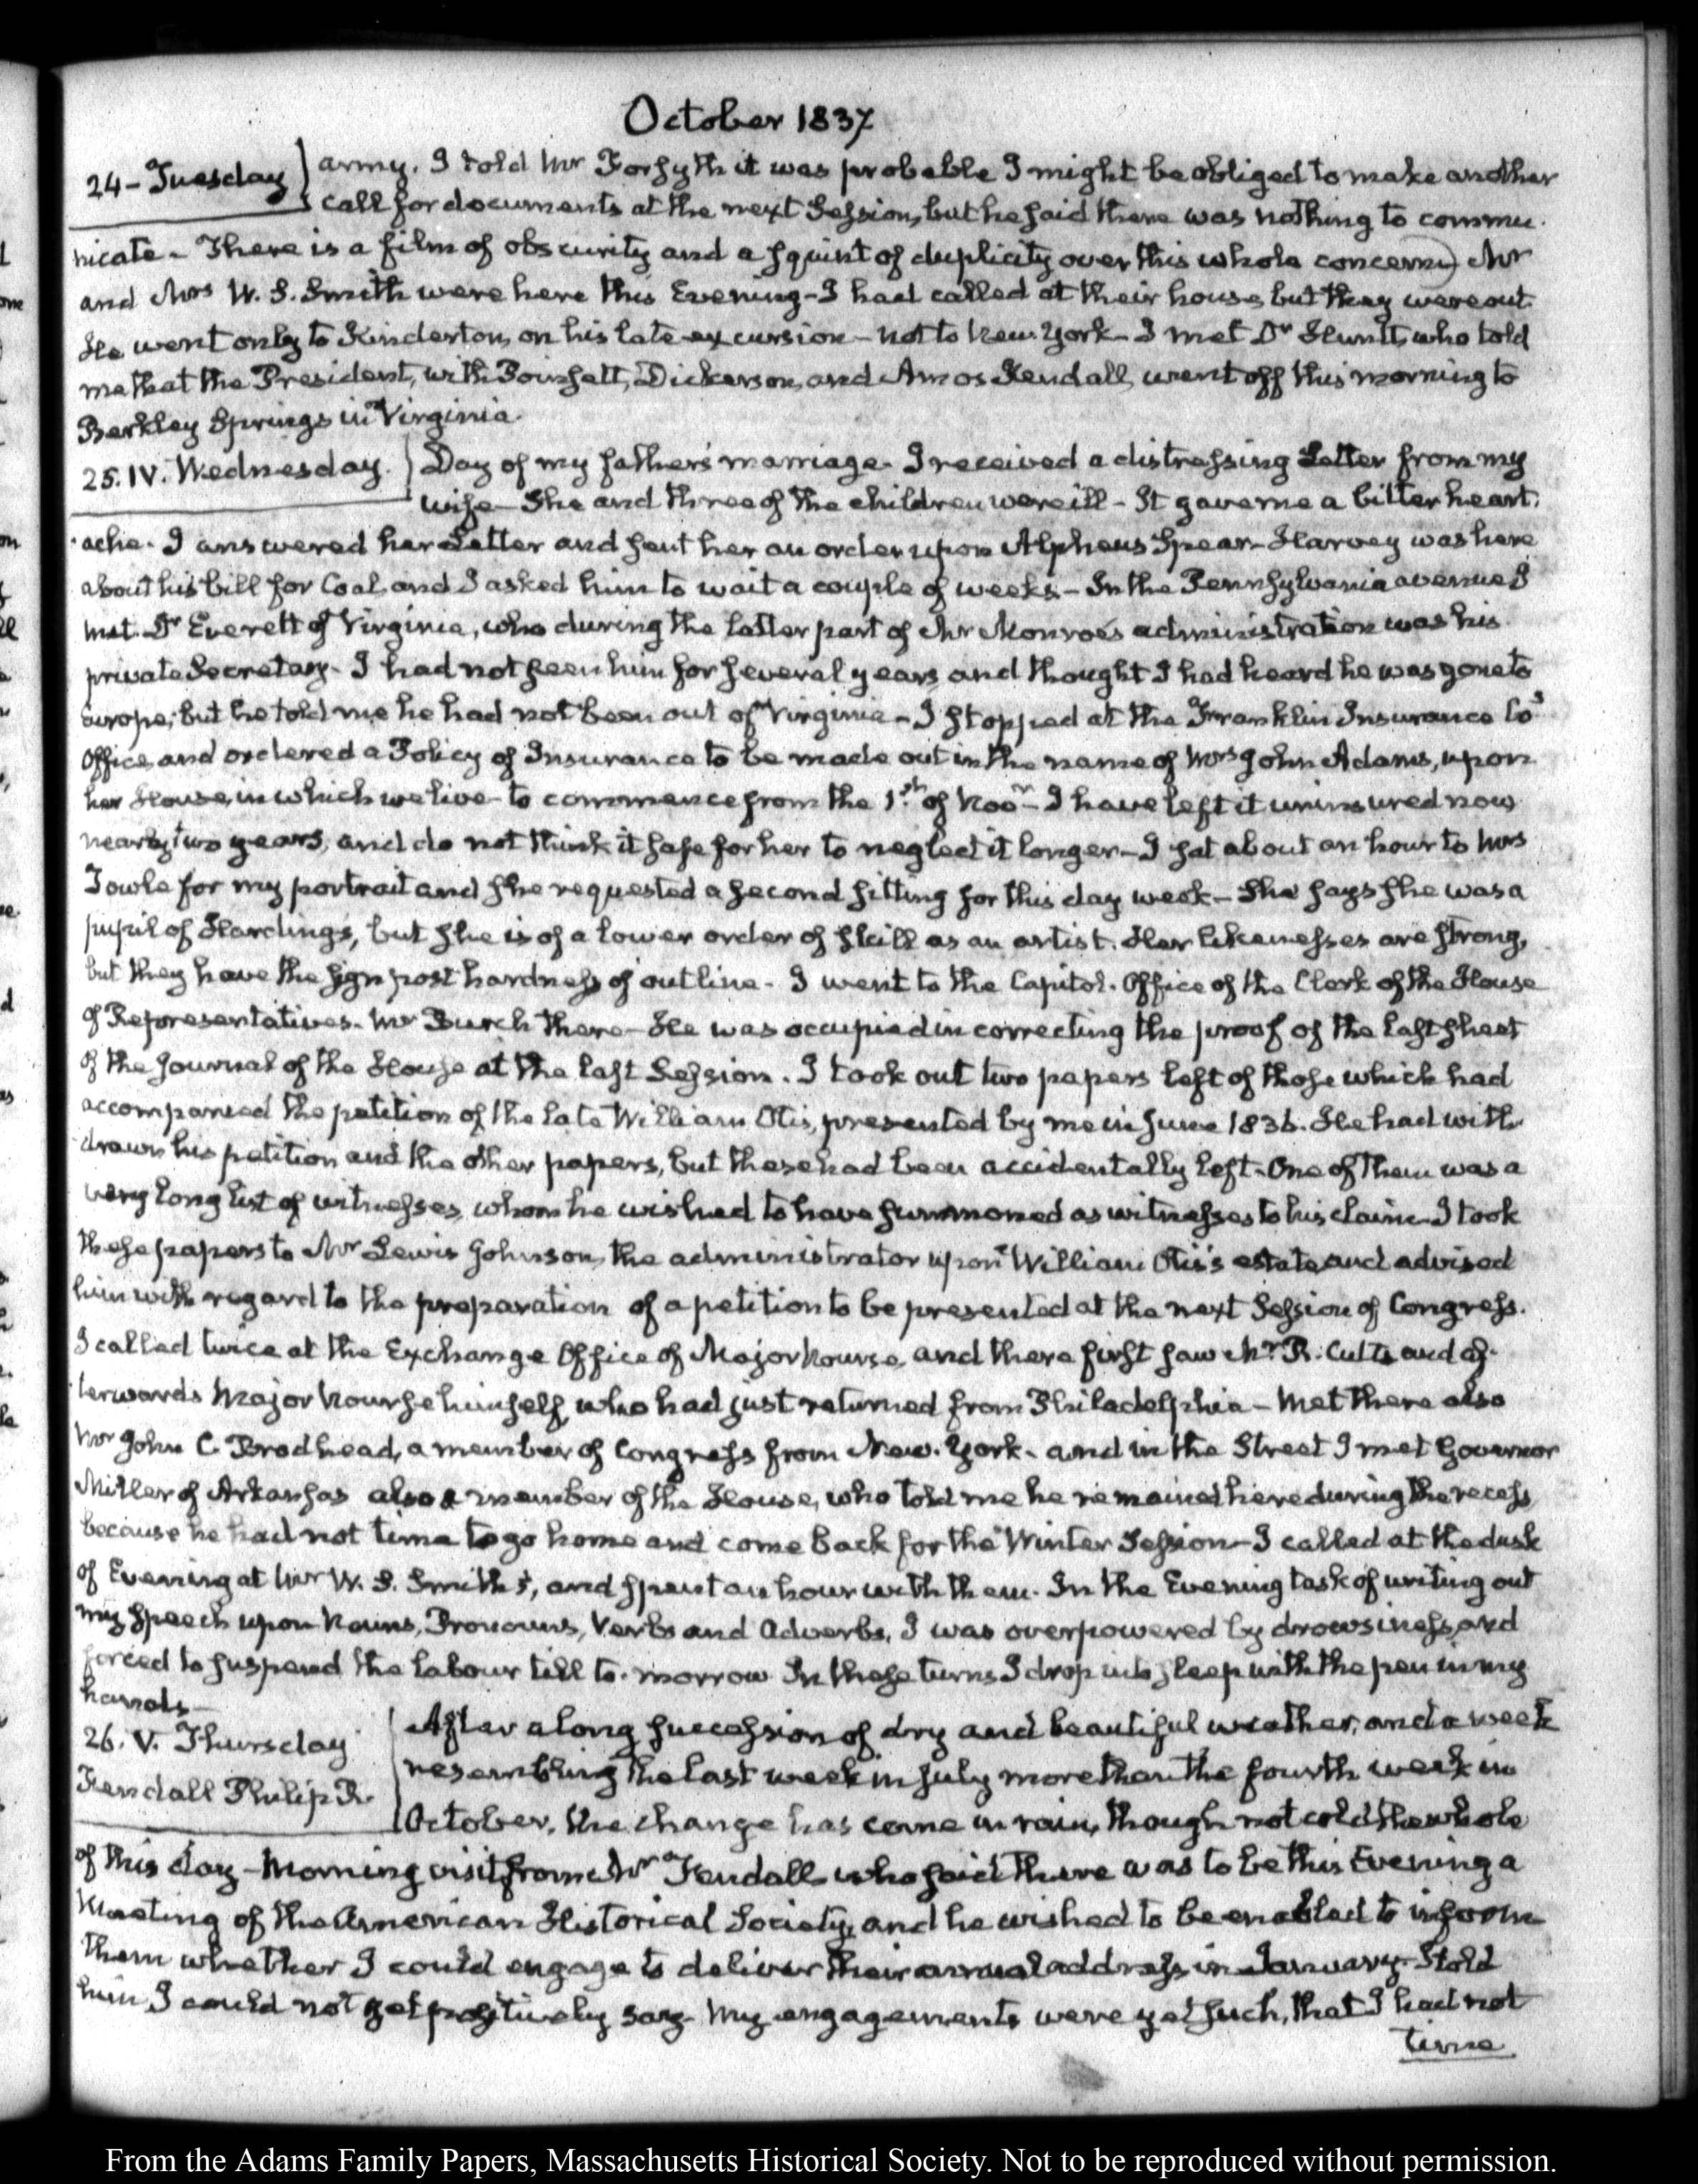 October 1837
24 - Tuesday
army. I told Mr Forsyth it was probable I might be obliged to make another
call for documents at the next Session, but he said there was nothing to commu-
nicate - There is a film of obscurity and a squint of duplicity over this whole concern) Mr
and Mrs W. S. Smith were here this Evening - I had called at their house, but they were out.
He went only to Kinderton, on his late excursion - not to New-York - I met Dr Hunt, who told
me that the President, with Poinsett, Dickerson, and Amos Kendall, went off this morning to
Berkley Springs in Virginia.
25. IV. Wednesday.
Day of my father's marriage. I received a distressing Letter from my
wife - She and three of the children were ill - It gave me a bitter heart-
ache. I answered her Letter and sent her an order upon Alpheus Spear - Harvey was here
about his bill for Coal, and I asked him to wait a couple of weeks - In the Pennsylvania avenue I
met Dr Everett of Virginia, who during the latter part of Mr Monroe's administration was his
private Secretary - I had not seen him for several years, and thought I had heard he was gone to
Europe; but he told me he had not been out of Virginia - I stopped at the Franklin Insurance Co's
Office, and ordered a Policy of Insurance to be made out in the name of Mrs John Adams, upon
her House, in which we live - to commence from the 1st of Novr - I have left it uninsured now
nearly two years, and do not think it safe for her to neglect it longer - I sat about an hour to Mrs
Towle for my portrait and she requested a second sitting for this day week - She says she was a
pupil of Harding's, but she is of a lower order of skill as an artist. Her likenesses are strong,
but they have the sign post hardness of outline. I went to the Capitol. Office of the Clerk of the House
of Representatives. Mr Burch there - He was occupied in correcting the proof of the last sheet
of the Journal of the House at the last Session. I took out two papers left of those which had
accompanied the petition of the late William Otis, presented by me in June 1836. He had with-
drawn his petition and the other papers, but these had been accidentally left. One of them was a
very long list of witnesses, whom he wished to have summoned as witnesses to his claim - I took
these papers to Mr Lewis Johnson, the administrator upon William Otis's estate, and advised
him with regard to the preparation of a petition to be presented at the next Session of Congress.
I called twice at the Exchange Office of Major Nourse, and there first saw Mr R. Cutts and af-
terwards Major Nourse himself, who had just returned from Philadelphia - Met there also
Mr John C. Brodhead, a member of Congress from New-York - and in the Street I met Governor
Miller of Arkansas also a member of the House, who told me he remained here during the recess,
because he had not time to go home and come back for the Winter Session - I called at the dusk
of Evening at Mr W. S. Smith's, and spent an hour with them. In the Evening task of writing out
my Speech upon Nouns, Pronouns, Verbs and Adverbs, I was overpowered by drowsiness, and
forced to suspend the labour till to-morrow. In these turns I drop into sleep with the pen in my
hand -
26. V. Thursday
Fendall Philip R.
After a long succession of dry and beautiful weather, and a week
resembling the last week in July more than the fourth week in
October, the change has come in rain, though not cold the whole
of this day - Morning visit from Mr Fendall who said there was to be this Evening a
Meeting of the American Historical Society, and he wished to be enabled to inform
them whether I could engage to deliver their annual address in January - I told
him I could not yet positively say - My engagements were yet such, that I had not
time
From the Adams Family Papers, Massachusetts Historical Society. Not to be reproduced without permission.